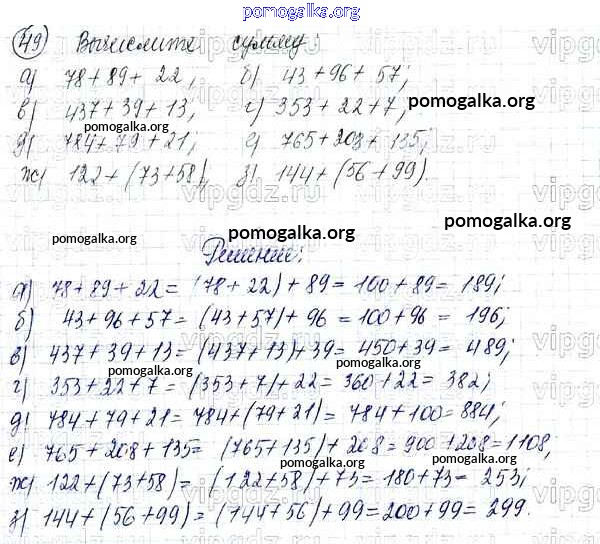 pomogalka.org
49 Вычислите сумму:
а) 78+89+22; б) 43+96+57;
в) 437+39+13; г) 353+22+7; pomogalka.org
pomogalka.org
д) 784+79+21; е) 765+208+135;
ж) 122+(73+58); з) 144+(56+99).
pomogalka.org pomogalka.org
Решение:
pomogalka.org
а) 78+89+22= (78+22)+89= 100+89= 189;
б) 43+96+57= (43+57)+96 = 100+96 = 196;
в) 437+39+13= (437+13)+39= 450+39= 489;
pomogalka.org
г) 353+22+7 = (353+7)+22= 360+22= 382;
д) 784+79+21= 784+(79+21)= 784+100= 884;
pomogalka.org
е) 765+208+135= (765+135)+208= 900+208= 1108;
pomogalka.org
ж) 122+(73+58)= (122+58)+73= 180+73= 253;
pomogalka.org
з) 144+(56+99)= (144+56)+99=200+99= 299.